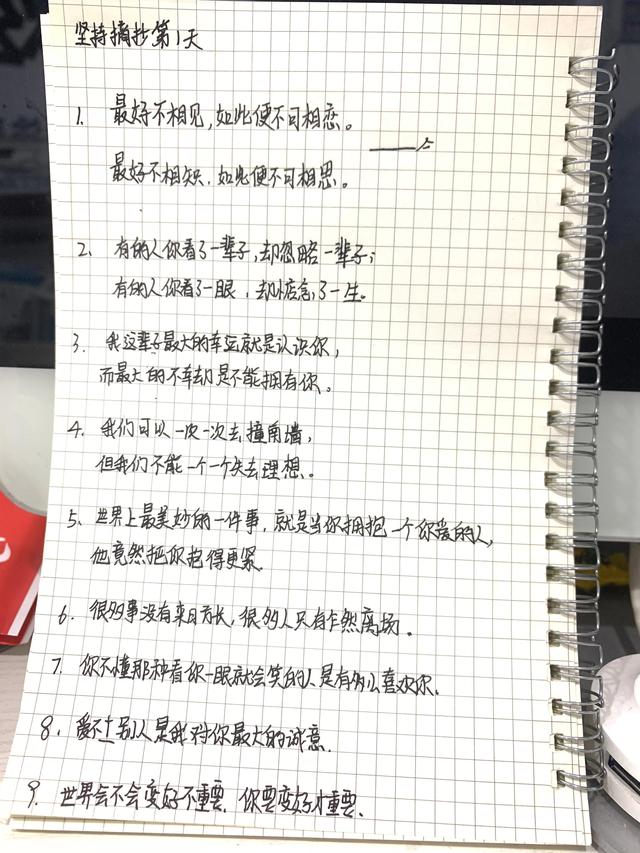 坚持摘抄第1天
1. 最好不相见,如此便不可相恋。
最好不相知.如此便不可相思。
2. 有的人你看了一辈子,却忽略一辈子;
有的人你看了一眼,却惦念了一生。
3. 我这辈子最大的幸运就是认识你,
而最大的不幸却是不能拥有你。
4. 我们可以一次一次去撞南墙,
但我们不能一个一个失去理想.
5. 世界上最美妙的一件事,就是当你拥抱一个你爱的人,
他竟然把你抱得更紧.
6. 很多事没有来日方长,很多人只有乍然离场。
7. 你不懂那种看你一眼就会笑的人是有多么喜欢你.
8. 爱不上别人是我对你最大的诚意.
9. 世界会不会变好不重要.你要变好才重要.